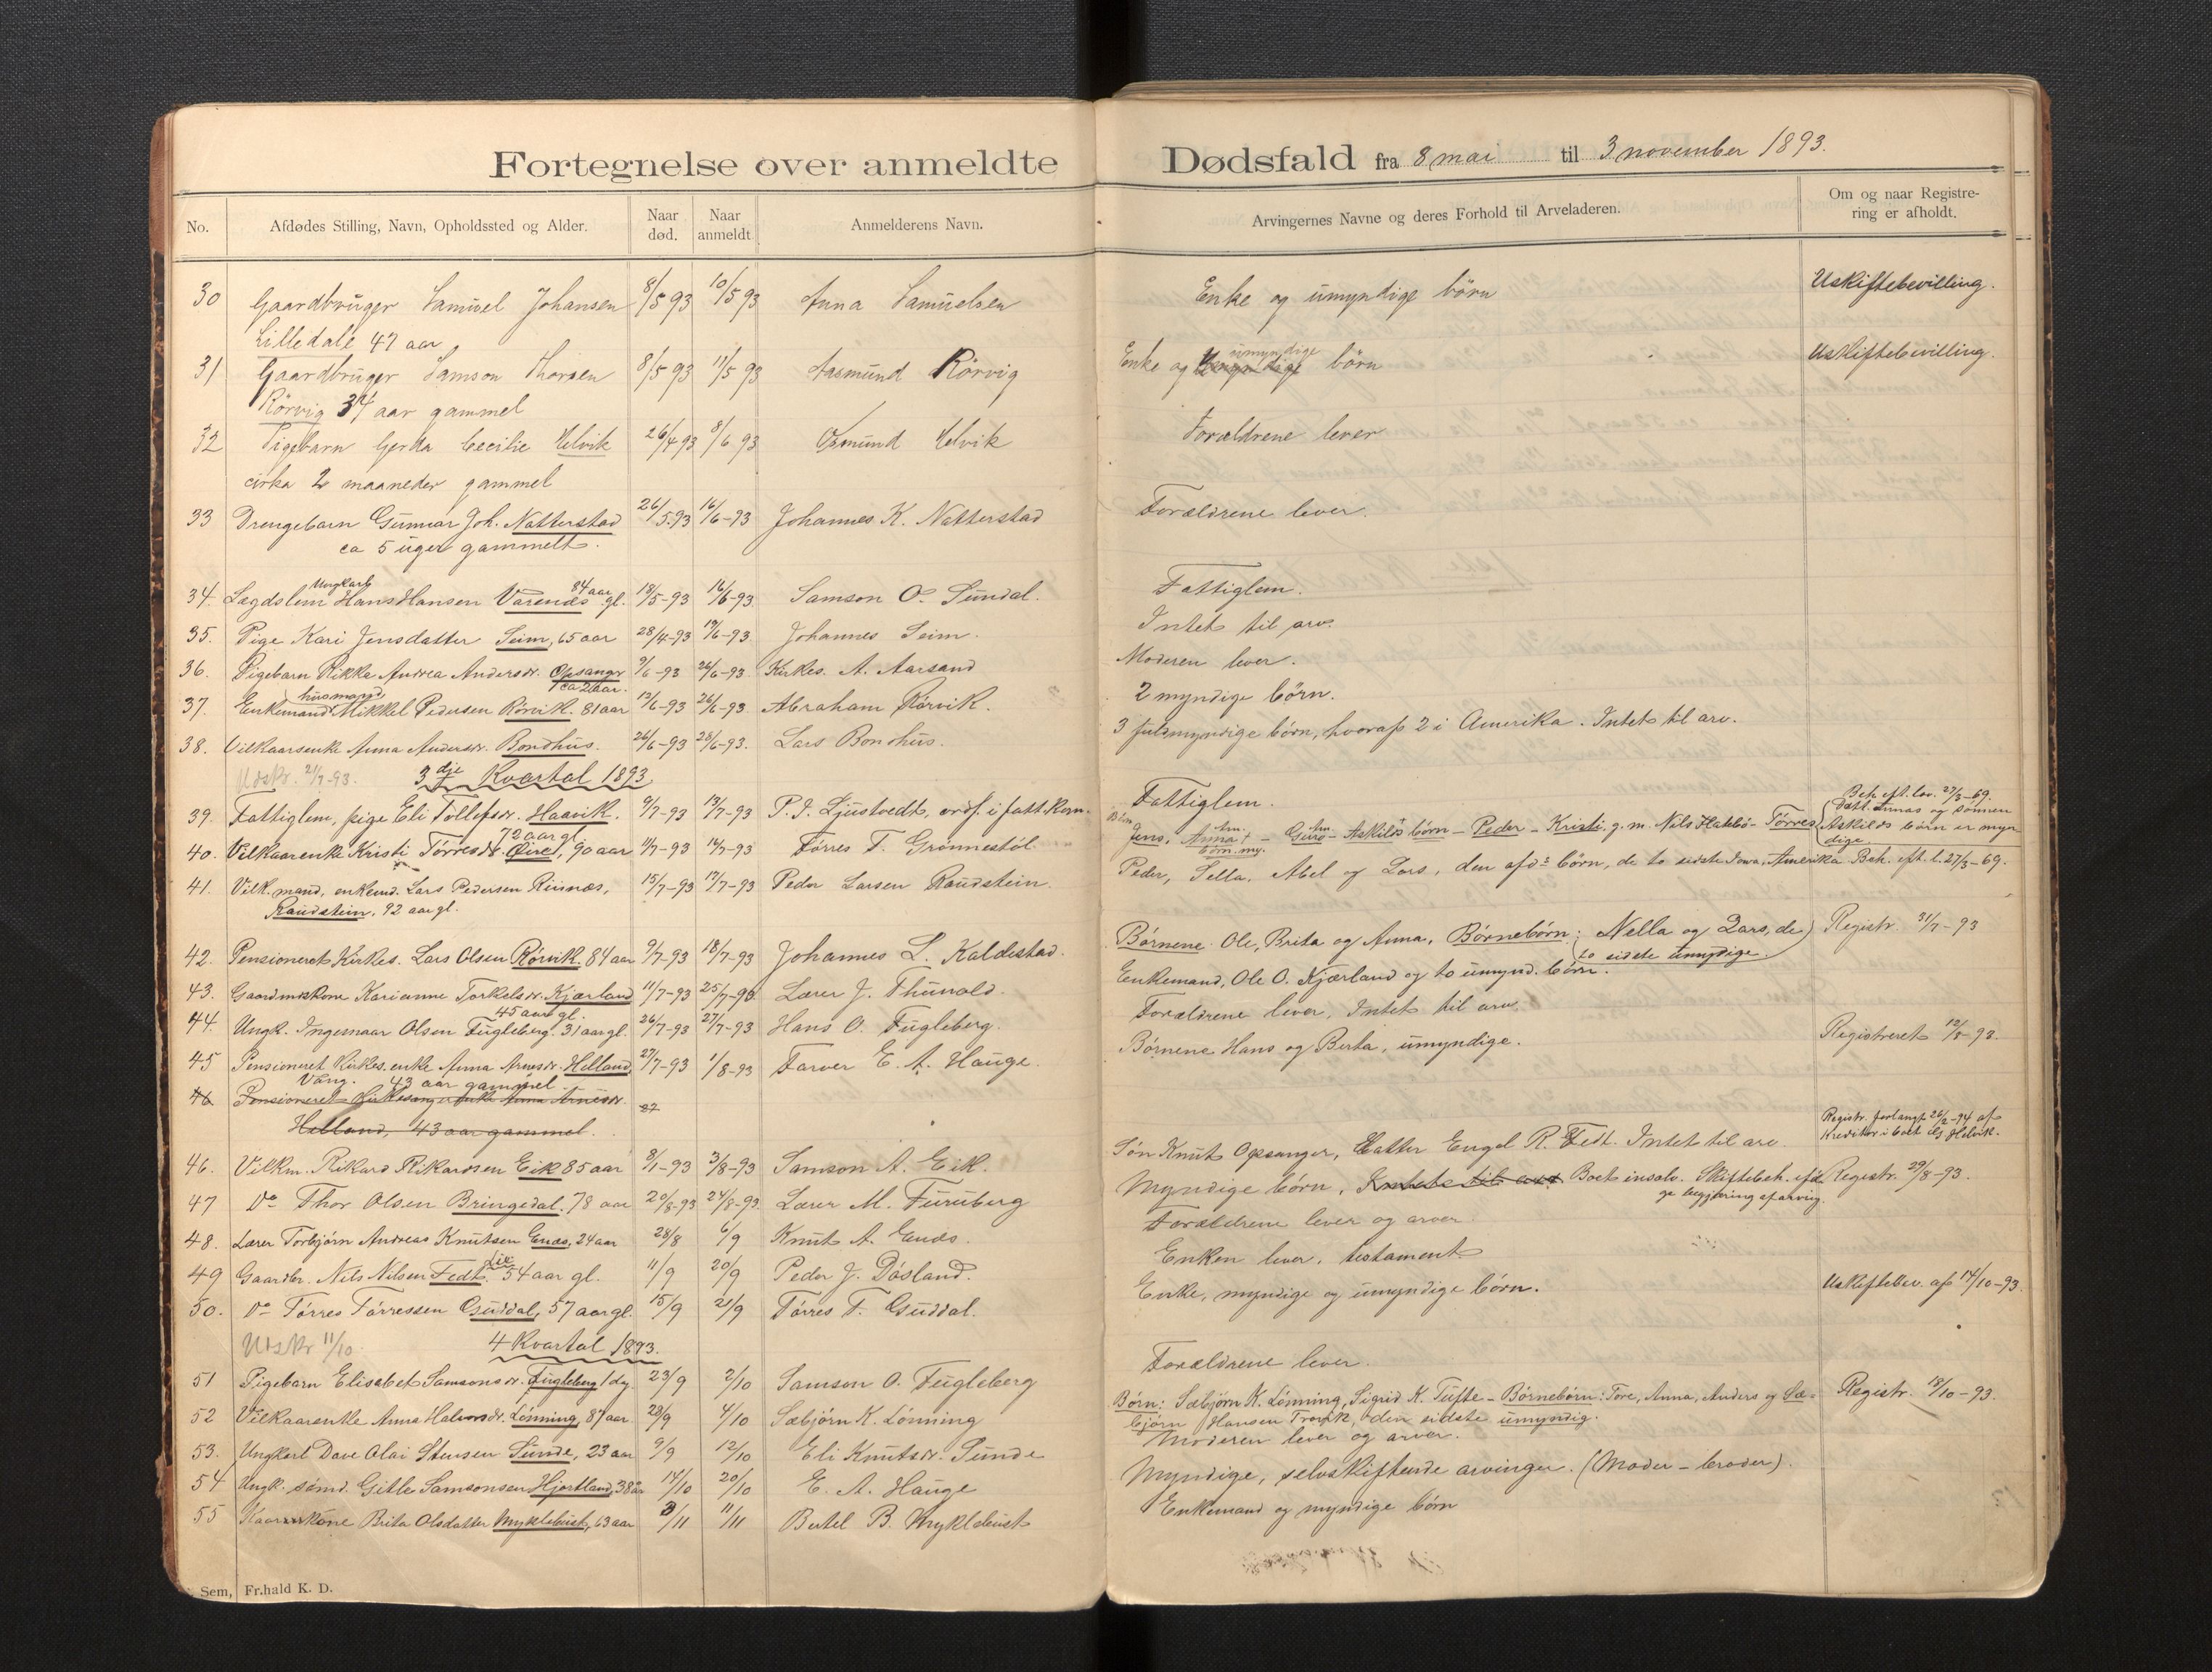 Fortegnelse over anmeldte Dødsfald fra 8 mai til 3 november 1893.
No. Afdødes Stilling, Navn, Opholdssted og Alder. Naar død. Naar anmeldt Anmelderens Navn. Arvingernes Navne og deres Forhold til Arveladeren. Om og naar Registrering er afholdt.
30 Gaardbruger Samuel Johansen 8/5 93 10/5 93 Anna Samuelsen Enke og umyndige börn Uskiftebevilling.
Lilledale 47 aar
31 Gaardbruger Samson Thorsen 8/5 93 11/5 93 Aasmund Rörvig Enke og umyndige börn Uskiftebevilling.
Rörvig 34 aar gammel
32 Pigebarn Gerda Cecilie Helvik 26/4 93 8/6 93 Osmund Helvik Forældrene lever
cirka 2 maaneder gammel
33 Drengebarn Gunnar Joh. Natterstad 26/5.93 16/6-93 Johannes K. Natterstad Forældrene lever.
ca 5 uger gammelt.
34. Lægdslem Ungkarl Hans Hansen Varenæs 84 aar gl. 18/5-93 16/6-93. Samson O. Sundal. Fattiglem.
35. Pige Kari Jensdatter Seim, 65 aar 28/4-93 19/6-93. Johannes Seim. Intet til arv.
36. Pigebarn Rikka Andrea Andersdr. Opsanger ca 2 aar. 9/6-93 26/6-93 Kirkes. A. Aarsand Moderen lever.
37. Enkemand husmand Mikkel Pedersen Rörvik. 81 aar 13/6-93 26/6-93 Abraham Rörvik. 2 myndige börn.
38. Vilkaarsenke Anna Andersdr. Bondhus. 26/6-93 28/6-93. Lars Bondhus. 3 fuldmyndige börn, hvoraf 2 i Amerika. Intet til arv.
Udskr. 2/7-93. 3dje Kvartal 1893.
39. Fattiglem, pige Eli Tollefsdr. Haavik. 9/7-93 13/7-93 P. J. Ljustvedt, ordf. i fatt. kom. Fattiglem.
72 aar gl.
40. Vilkaarenke Kristi Törresdr. Öire, 90 aar 11/7-93 14/7-93 Törres T. Grönnestöl. Börn Jens, Anna + börn my. - Guro - Askilds börn - Peder - Kristi, g. m. Nils Hatlebö - Törres Beh. eft. lov. 27/3-69. Datt. Annas og sönnen Askilds börn er myndige
41. Vilk. mand, enkemd. Lars Pedersen Riisnæs, 15/7-93 17/7-93 Peder Larsen Raudstein. Peder, Sella, Abel og Lars, den afd's börn, de to sidste Iowa, Amerika Beh. eft. l. 27/3-69.
Raudstein, 92 aar gl.
42. Pensioneret Kirkes. Lars Olsen Rörvik. 84 aar 9/7-93 18/7-93 Johannes L. Kaldestad. Börnene: Ole, Brita og Anna, Börnebörn: (Nella og Lars, de to sidste umyndige.) Registr. 31/7-93
43. Gaardmskone Karianne Torkelsdr. Kjærland 11/7-93 25/7-93 Lærer J. Thunold. Enkemand, Ole O. Kjærland og to umynd. börn.
45 aar gl.
44. Ungk. Ingemaar Olsen Fugleberg. 31 aar gl. 26/7-93 27/7-93 Hans O. Fugleberg. Forældrene lever, Intet til arv.
45 Pensioneret Kirkes. enke Anna Arnesdr. Helland, 27/7-93 1/8-93 Farver E. A. Hauge. Börnene Hans og Berta, umyndige. Registreret 12/8-93.
Vang. 43 aar gammel.
46 Pensioneret Kirkesangerenke Anna Arnesdr. 27
Helland, 43 aar gammel.
46. Vilkm. Rikard Rikardsen Eik 85 aar 8/1-93 3/8-93 Samson A. Eik. Sön Knut Opsanger, Datter Engel R. Fedt. Intet til arv. Registr. forlangt 26/2-94 af Kreditor i boet Helvik.
47 Do Thor Olsen Bringedal. 78 aar 20/8-93 24/8-93. Lærer M. Furuberg Myndige börn, Intet til arv Boet insolv. Skiftebeh. efter begjæring af arving. Registr. 29/8-93.
48. Lærer Torbjörn Andreas Knutsen Enæs, 24 aar 28/8 6/9 Knut A. Enæs. Forældrene lever og arver.
49 Gaardbr. Nils Nilsen Fedt. 54 aar gl. 11/9 20/9 Peder J. Dösland. Enken lever, testament.
50. Do Törres Törressen Guddal, 57 aar gl. 15/9 21/9 Törres T. Guddal. Enke, myndige og umyndige börn. Uskiftebev. af 14/10-93.
Utskr 11/10. 4 Kvartal 1893.
51 Pigebarn Elisabet Samsonsdr. Fugleberg 1 dg. 23/9 2/10 Samson O. Fugleberg Forældrene lever.
52 Vilkaarenke Anna Halvorsdr. Lönning, 87 aar 23/9 4/10 Sæbjörn K. Lönning Börn: Sæbjörn K. Lönning, Sigrid K. Tufte - Börnebörn: Tore, Anna, Anders og Sæbjörn Hansen Trovik, den sidste umyndig. Registr. 18/10-93.
53. Ungkarl Dave Olai Stensen Sunde, 23 aar 9/9 12/10 Eli Knutsdr. Sunde Moderen lever og arver.
54 Ungk. sömd. Gitle Samsonsen Hjortland, 38 aar 14/10 20/10 E. A. Hauge Myndige, selvskiftende arvinger. (Moder - broder).
55 Kaarkone Brita Olsdatter Myklebust, 63 aar 3/11 11/11 Bertel B. Myklebust Enkemand og myndige börn
Sem, Fr.hald K. D.